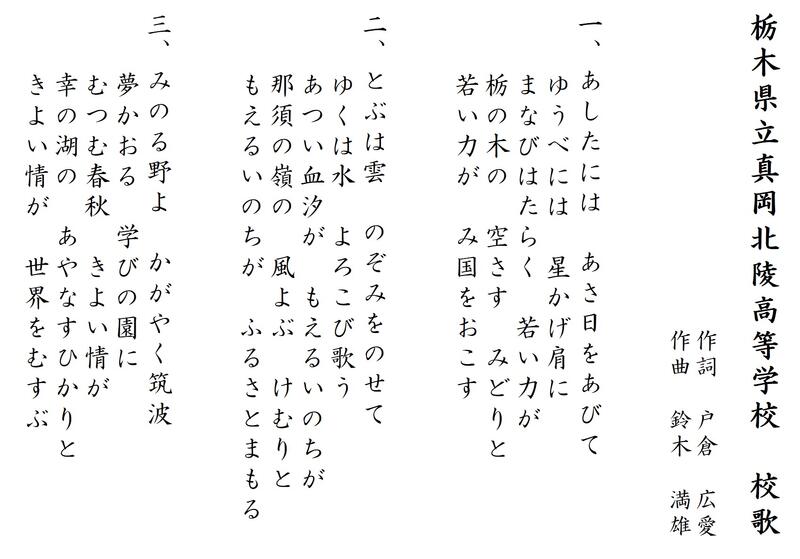 栃木県立真岡北陵高等学校　校歌
作詞　戸倉　広愛
作曲　鈴木　満雄
一、あしたには　あさ日をあびて
ゆうべには　星かげ肩に
まなびはたらく　若い力が
栃の木の　空さす　みどりと
若い力が　み国をおこす
二、とぶは雲　のぞみをのせて
ゆくは水　よろこび歌う
あつい血汐が　もえるいのちが
那須の嶺の　風よぶ　けむりと
もえるいのちが　ふるさとまもる
三、みのる野よ　かがやく筑波
夢かおる　学びの園に
むつむ春秋　きよい情が
幸の湖の　あやなすひかりと
きよい情が　世界をむすぶ